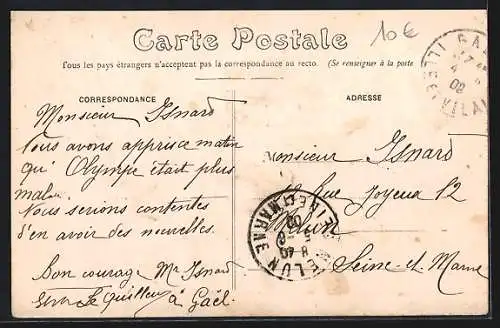 Carte Postale
10€
Tous les pays étrangers n'acceptent pas la correspondance au recto. (Se renseigner à la poste
CORRESPONDANCE
ADRESSE
Monsieur Isnard
Nous avons appris ce matin
qu'Olympe était plus
mal
Nous serions contentes
d'en avoir des nouvelles.
Bon courage Mr Isnard
Le Quilleuc à Gaël
Monsieur Isnard
Rue Joyeux 12
Melun
Seine-et-Marne
GAEL
ILLE-ET-VILAINE
MELUN
SEINE-ET-MARNE